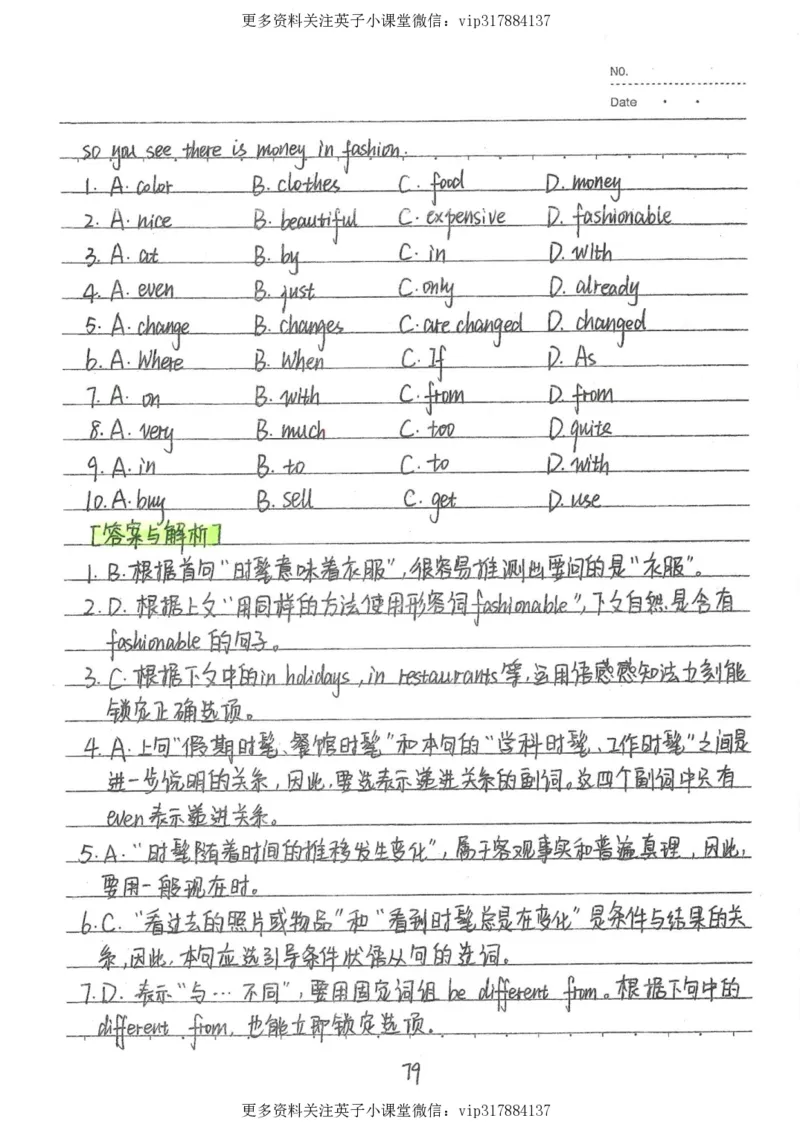 更多资料关注英子小课堂微信：vip317884137
NO.
Date
so you see there is money in fashion.
1. A. color B. clothes C. food D. money
2. A. nice B. beautiful C. expensive D. fashionable
3. A. at B. by C. in D. with
4. A. even B. just C. only D. already
5. A. change B. changes C. are changed D. changed
6. A. Where B. When C. If D. As
7. A. on B. with C. from D. from
8. A. very B. much C. too D. quite
9. A. in B. to C. to D. with
10. A. buy B. sell C. get D. use
[答案与解析]
1. B. 根据首句“时髦意味着衣服”，很容易推测出要问的是“衣服”。
2. D. 根据上文“用同样的方法使用形容词fashionable”，下文自然是含有
fashionable 的句子。
3. C. 根据下文中的in holidays, in restaurants等，运用语感感知法立刻能
锁定正确选项。
4. A. 上句“假期时髦、餐馆时髦”和本句的“学科时髦、工作时髦”之间是
进一步说明的关系，因此，要选表示递进关系的副词。这四个副词中只有
even 表示递进关系。
5. A. “时髦随着时间的推移发生变化”，属于客观事实和普遍真理，因此，
要用一般现在时。
6. C. “看过去的照片或物品”和“看到时髦总是在变化”是条件与结果的关
系，因此，本句应选引导条件状语从句的连词。
7. D. 表示“与…不同”，要用固定词组 be different from。根据下句中的
different from, 也能立即锁定选项.
79
更多资料关注英子小课堂微信：vip317884137